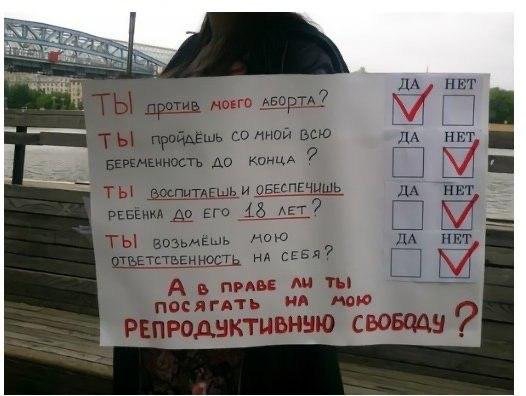 ДА НЕТ
ТЫ против моего аборта?
ТЫ пройдёшь со мной всю
беременность до конца?
ДА НЕТ
ТЫ воспитаешь и обеспечишь
ребёнка до его 18 лет?
ДА НЕТ
ТЫ возьмёшь мою
ответственность на себя?
ДА НЕТ
А в праве ли ты
посягать на мою
РЕПРОДУКТИВНУЮ СВОБОДУ?